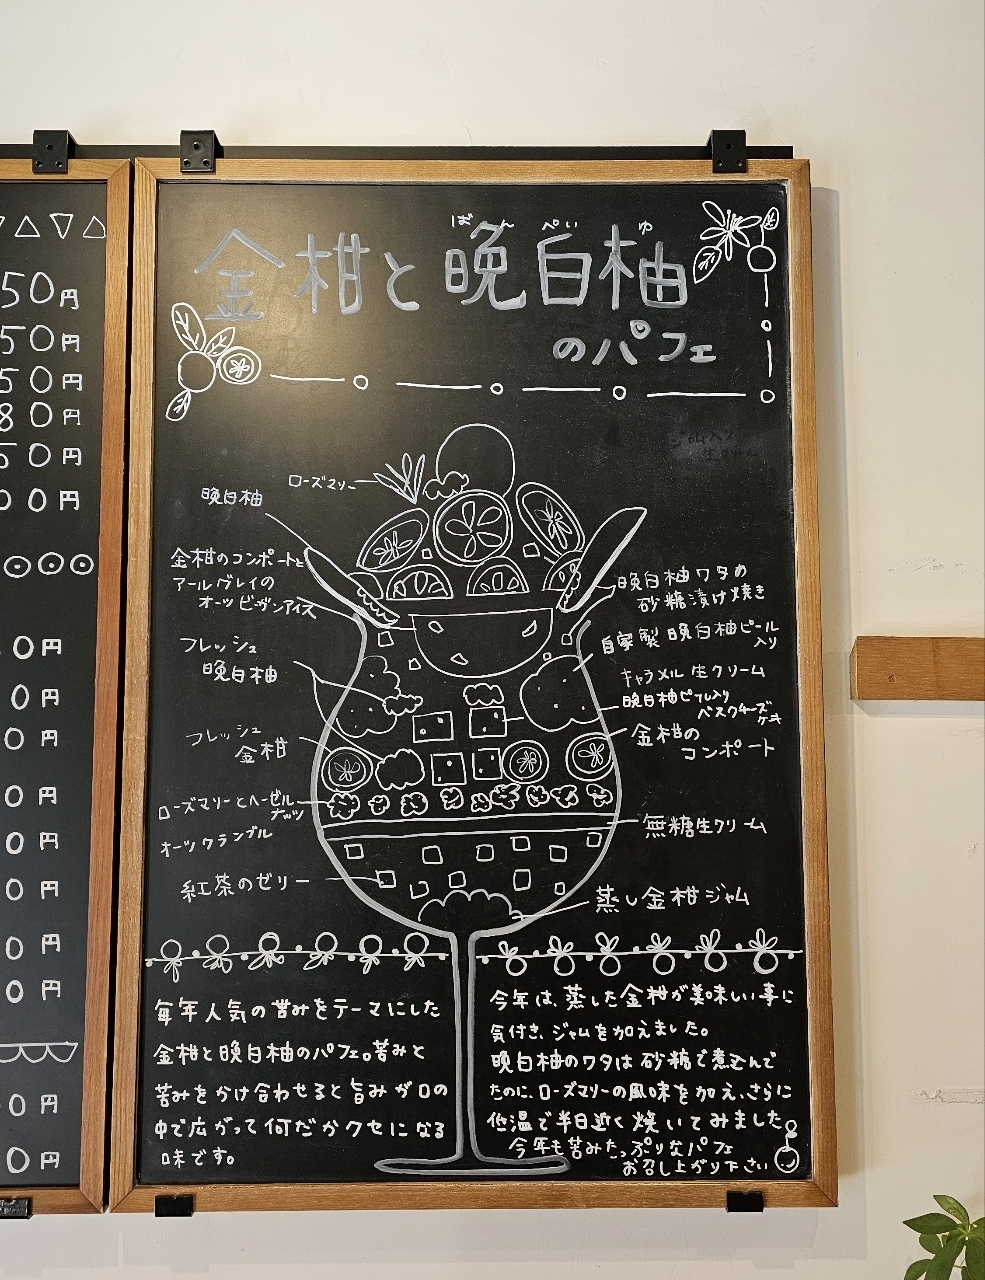 50円
50円
50円
80円
50円
00円
0円
0円
0円
0円
0円
0円
0円
0円
0円
0円
ばんぺいゆ
金柑と晩白柚
のパフェ
ジャム入り
生クリーム
ローズマリー
晩白柚
金柑のコンポートと
アールグレイの
オーツビーガンアイス
フレッシュ
晩白柚
フレッシュ
金柑
ローズマリーとヘーゼル
ナッツ
オーツクランブル
紅茶のゼリー
晩白柚ワタの
砂糖漬け焼き
自家製晩白柚ピール
入り
キャラメル生クリーム
晩白柚ピール入り
バスクチーズ
ケーキ
金柑の
コンポート
無糖生クリーム
蒸し金柑ジャム
毎年人気の苦みをテーマにした
金柑と晩白柚のパフェ。苦みと
苦みをかけ合わせると旨みが口の
中で広がって何だかクセになる
味です。
今年は、蒸した金柑が美味しい事に
気付き、ジャムを加えました。
晩白柚のワタは砂糖で煮込んで
たのに、ローズマリーの風味を加え、さらに
低温で半日近く焼いてみました。
今年も苦みたっぷりなパフェ
お召し上がり下さい